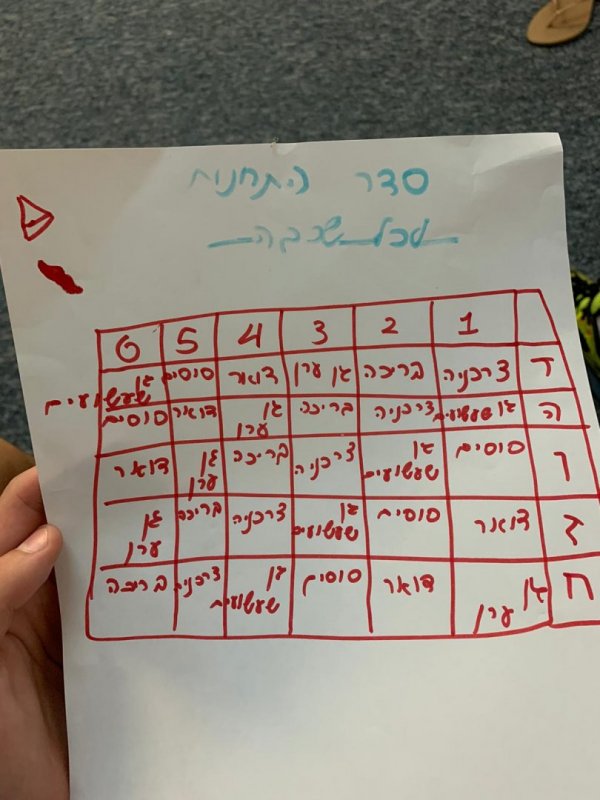 סדר התחנות
לכל שכבה
1 2 3 4 5 6
ד צרכניה בריכה גן ערן דואר סוסים גן שעשועים
ה גן שעשועים צרכניה בריכה גן ערן דואר סוסים
ו סוסים גן שעשועים צרכניה בריכה גן ערן דואר
ז דואר סוסים גן שעשועים צרכניה בריכה גן ערן
ח גן ערן דואר סוסים גן שעשועים צרכניה בריכה